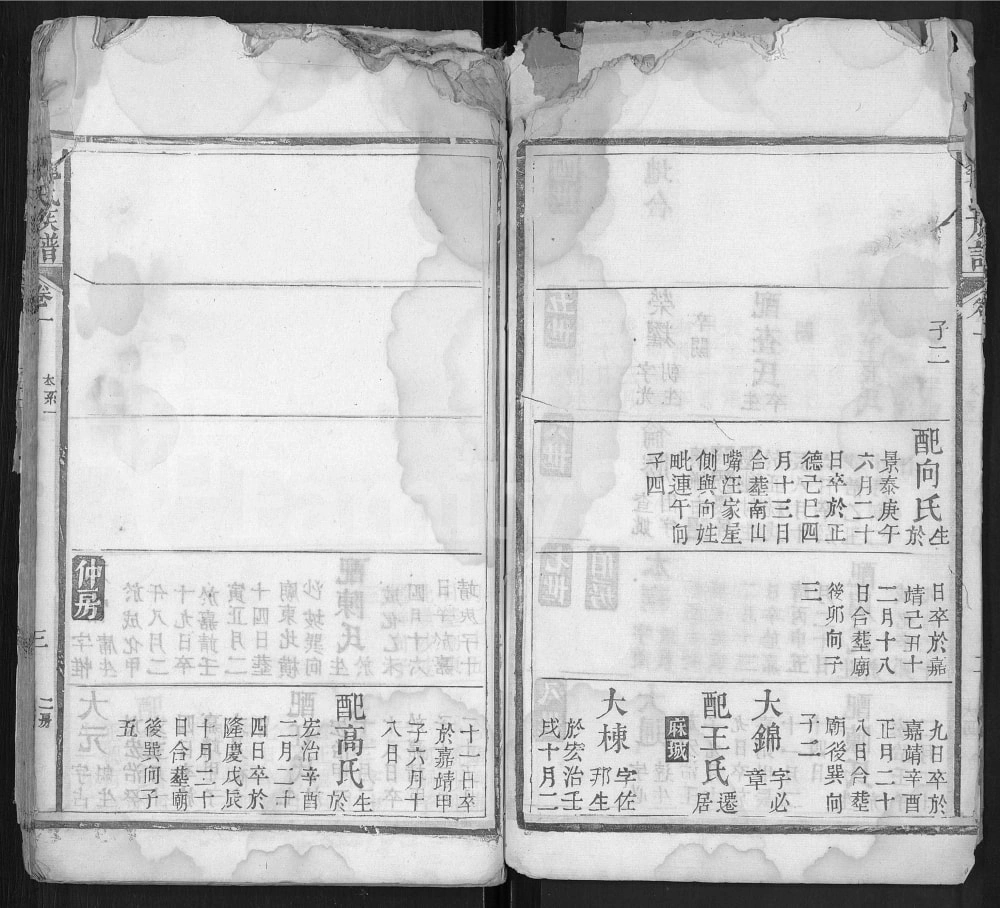 族譜
卷一
子二
配向氏生於
景泰庚午
六月二十
日卒於正
德己巳四
月十三日
合塟南山
嘴汪家屋
側與向姓
毗連午向
子四
日卒於嘉
靖己丑十
二月十八
日合塟廟
後卯向子
三
九日卒於
嘉靖辛酉
正月二十
八日合塟
廟後巽向
子二
大錦字必章
配王氏遷居
麻城
大棟字佐邦生
於宏治壬
戌十月二
仲房
十一日卒
於嘉靖甲
子六月十
八日
配高氏生於
宏治辛酉
二月二十
四日卒於
隆慶戊辰
十月二十
日合塟廟
後巽向子
五
氏族譜
卷一
本系一
三
二房